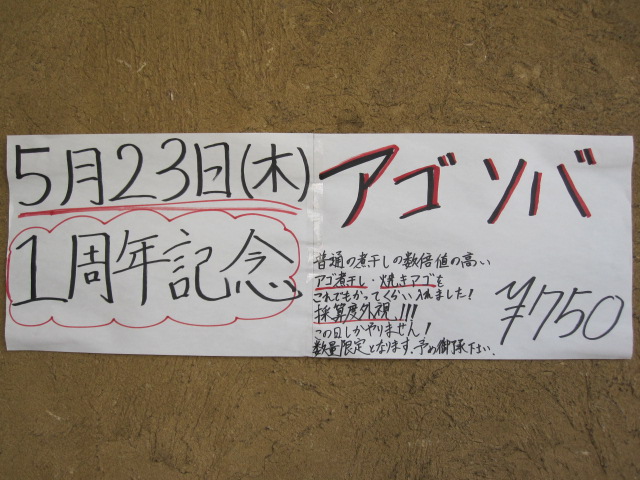 5月23日(木)
1周年記念
アゴソバ
普通の煮干しの数倍値の高い
アゴ煮干し・焼きアゴを
これでもかってくらい入れました!
採算度外視!!!
この日しかやりません!
数量限定となります、予め御了承下さい。
¥750